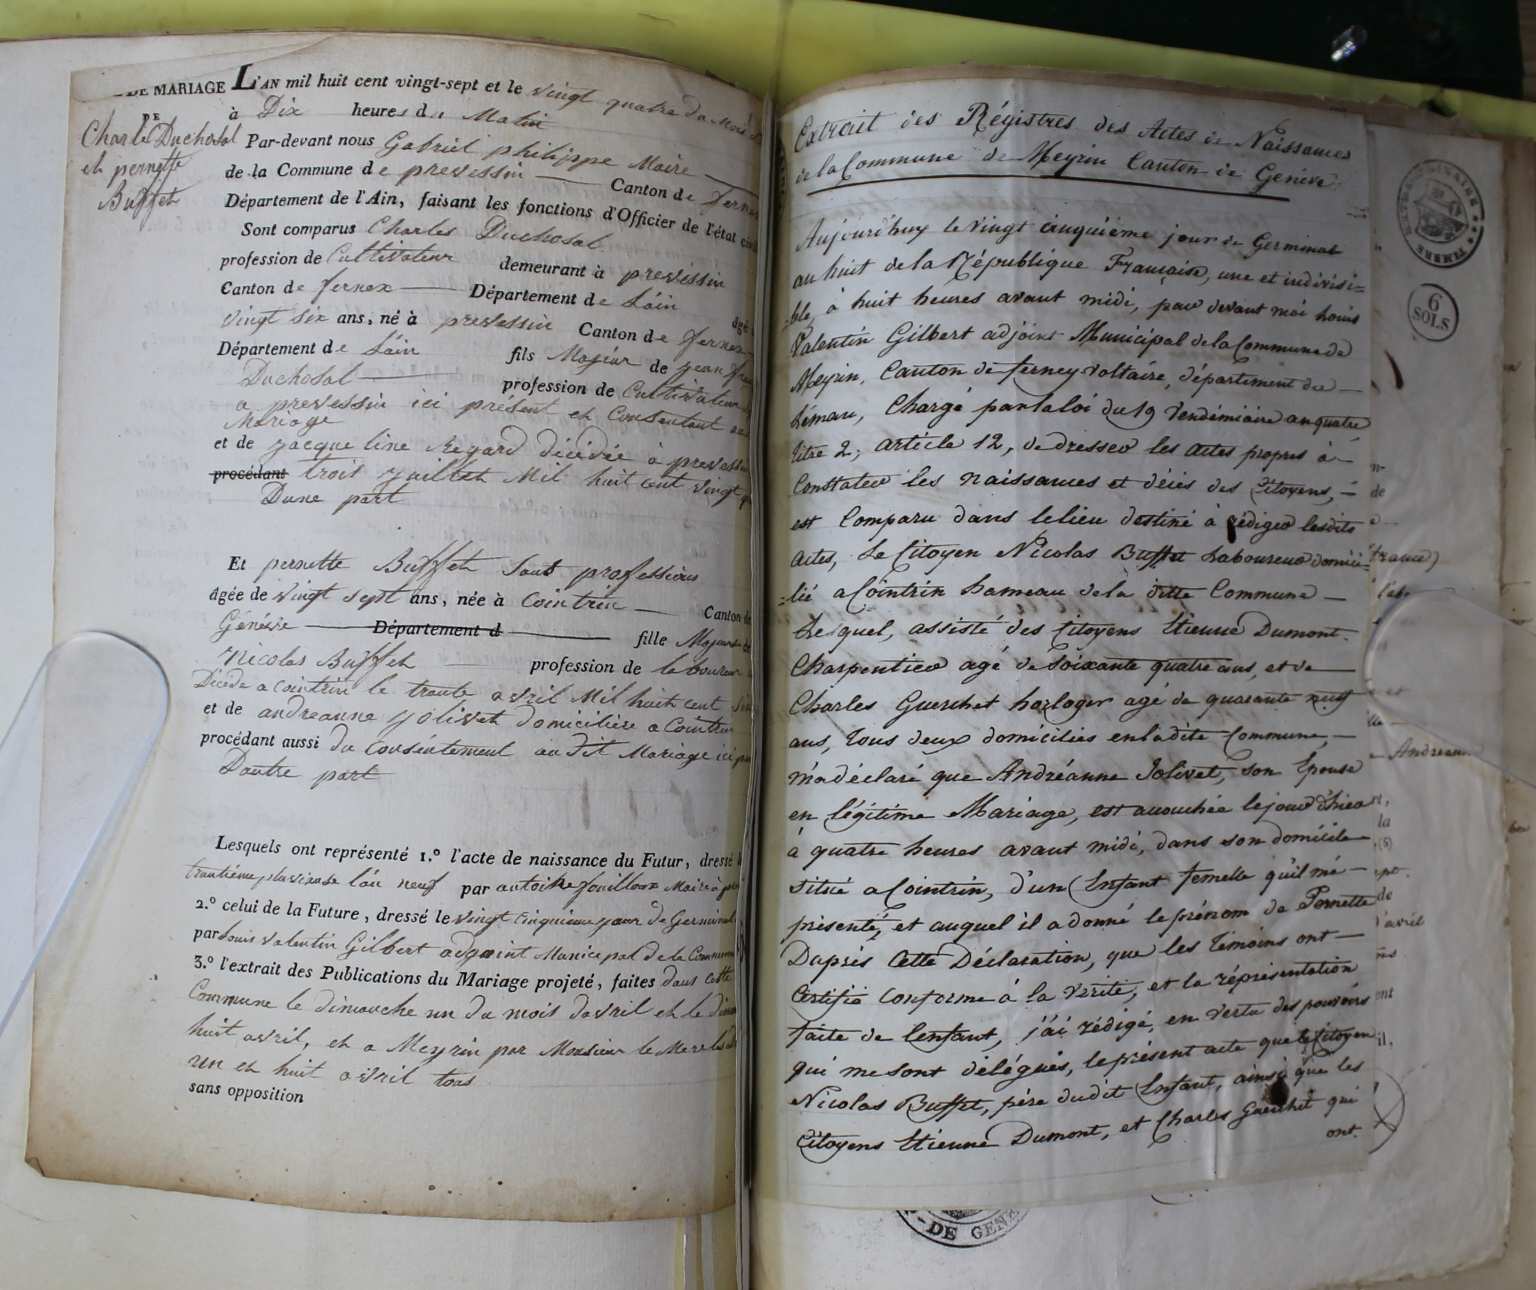 DE MARIAGE
DE
Charle Duchosal
et pernette
Buffet
L'AN mil huit cent vingt-sept et le vingt quatre du Mois
à Dix heures du Matin
Par-devant nous Gabriel philippe Maire
de la Commune de prevessin Canton de fernex
Département de l'Ain, faisant les fonctions d'Officier de l'état
Sont comparus Charles Duchosal
profession de Cultivateur demeurant à prevessin
Canton de fernex Département de L'ain âgé
vingt six ans, né à prevessin Canton de fernex
Département de L'ain fils Majeur de jean
Duchosal profession de Cultivateur
a prevessin ici présent et Consentant
Mariage
et de jacqueline Regard décédée à prevessin
procédant troit juillet Mil huit cent vingt
Dune part
Et pernette Buffet Sant professions
âgée de vingt sept ans, née à Cointrin Canton de
Genéve Département d fille Majeure
Nicolas Buffet profession de laboureur
Décédé a cointrin le trante avril Mil huit cent
et de andreanne jolivet domicilière a Cointrin
procédant aussi du consentement au dit Mariage ici
Dautre part
Lesquels ont représenté 1.° l'acte de naissance du Futur, dressé
trantième pluviose l'an neuf par antoine fouilloux Maire à
2.° celui de la Future, dressé le vingt cinquieme jour de Germinal
par Louis Valentin Gilbert adjoint Municipal de la Commune
3.° l'extrait des Publications du Mariage projeté, faites dans cette
Commune le dimanche un du mois davril et le
huit avril, et a Meyrin par Monsieur le Mere les
un et huit avril tous
sans opposition
Extrait des Régistres des Actes de Naissances
de la Commune de Meyrin Canton de Genève
Aujourd'huy le vingt cinquième jour de Germinal
an huit de la République Française, une et indivisi=
=ble, à huit heures avant midi, par devant moi Louis
Valentin Gilbert adjoint Municipal de la Commune de
Meyrin, Canton de ferney-voltaire, département du
Léman, Chargé par la loi du 19 Vendémiaire an quatre
titre 2, article 12, de dresser les actes propres à
Constater les naissances et décès des Citoyens,
est Comparu dans le lieu destiné à rédiger lesdits
actes, Le Citoyen Nicolas Buffet Laboureur domici=
=lié a Cointrin hameau de la ditte Commune
Lequel, assisté des Citoyens Etienne Dumont
Charpentier agé de soixante quatre ans, et de
Charles Guerchet horloger agé de quarante neuf
ans, tous deux domiciliés en la dite Commune,
m'a déclaré que Andréanne Jolivet, son Epouse
en légitime Mariage, est accouchée le jour d'hier
à quatre heures avant midi, dans son domicile
situé a Cointrin, d'un Enfant femelle qu'il m'a
présenté, et auquel il a donné le prénom de Pernette
Daprès Cette Déclaration, que les témoins ont
Certifié Conforme à la vérité, et la représentation
faite de l'enfant, j'ai rédigé, en vertu des pouvoirs
qui me sont délégués, le présent acte que le Citoyen
Nicolas Buffet, père dudit Enfant, ainsi que les
Citoyens Etienne Dumont, et Charles Guerchet qui
ont
6
SOLS
TIMBRE
france)
Andreanne
la
de
d'avril
ont
DE GENÈ